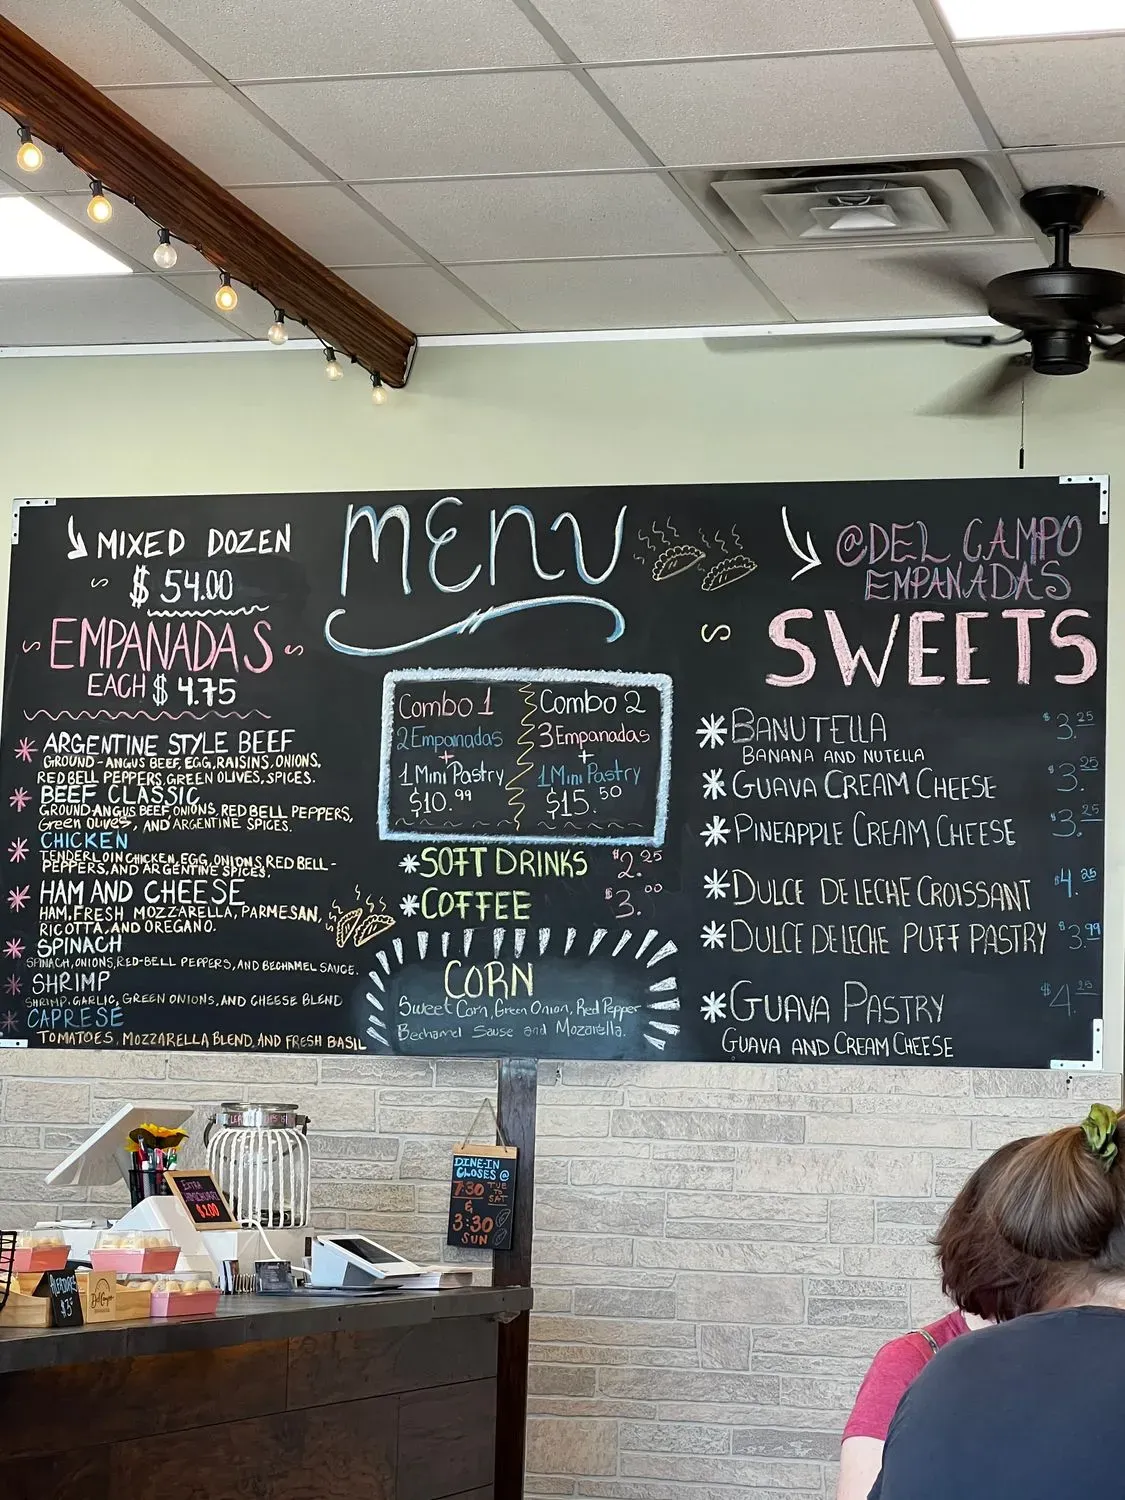 MIXED DOZEN
$ 54.00
EMPANADAS
EACH $ 4.75
* ARGENTINE STYLE BEEF
GROUND-ANGUS BEEF, EGG, RAISINS, ONIONS,
RED BELL PEPPERS, GREEN OLIVES, SPICES.
* BEEF CLASSIC
GROUND ANGUS BEEF, ONIONS, RED BELL PEPPERS,
Green OLIVES, AND ARGENTINE SPICES.
* CHICKEN
TENDERLOIN CHICKEN, EGG, ONIONS, RED BELL-
PEPPERS, AND ARGENTINE SPICES.
* HAM AND CHEESE
HAM, FRESH MOZZARELLA, PARMESAN,
RICOTTA, AND OREGANO.
* SPINACH
SPINACH, ONIONS, RED-BELL PEPPERS, AND BECHAMEL SAUCE.
* SHRIMP
SHRIMP, GARLIC, GREEN ONIONS, AND CHEESE BLEND
* CAPRESE
TOMATOES, MOZZARELLA BLEND, AND FRESH BASIL
MENU
Combo 1
2 Empanadas
+
1 Mini Pastry
$10.99
Combo 2
3 Empanadas
+
1 Mini Pastry
$15.50
* SOFT DRINKS $2.25
* COFFEE $3.00
CORN
Sweet Corn, Green Onion, Red Pepper
Bechamel Sause and Mozarella.
@DEL CAMPO
EMPANADAS
SWEETS
* BANUTELLA $3.25
BANANA AND NUTELLA
* GUAVA CREAM CHEESE $3.25
* PINEAPPLE CREAM CHEESE $3.25
* DULCE DE LECHE CROISSANT $4.25
* DULCE DE LECHE PUFF PASTRY $3.99
* GUAVA PASTRY $4.25
GUAVA AND CREAM CHEESE
DINE-IN
CLOSES @
7:30 TUE TO SAT
&
3:30
SUN
EXTRA
CHIMICHURRI
$2.00
Del Campo